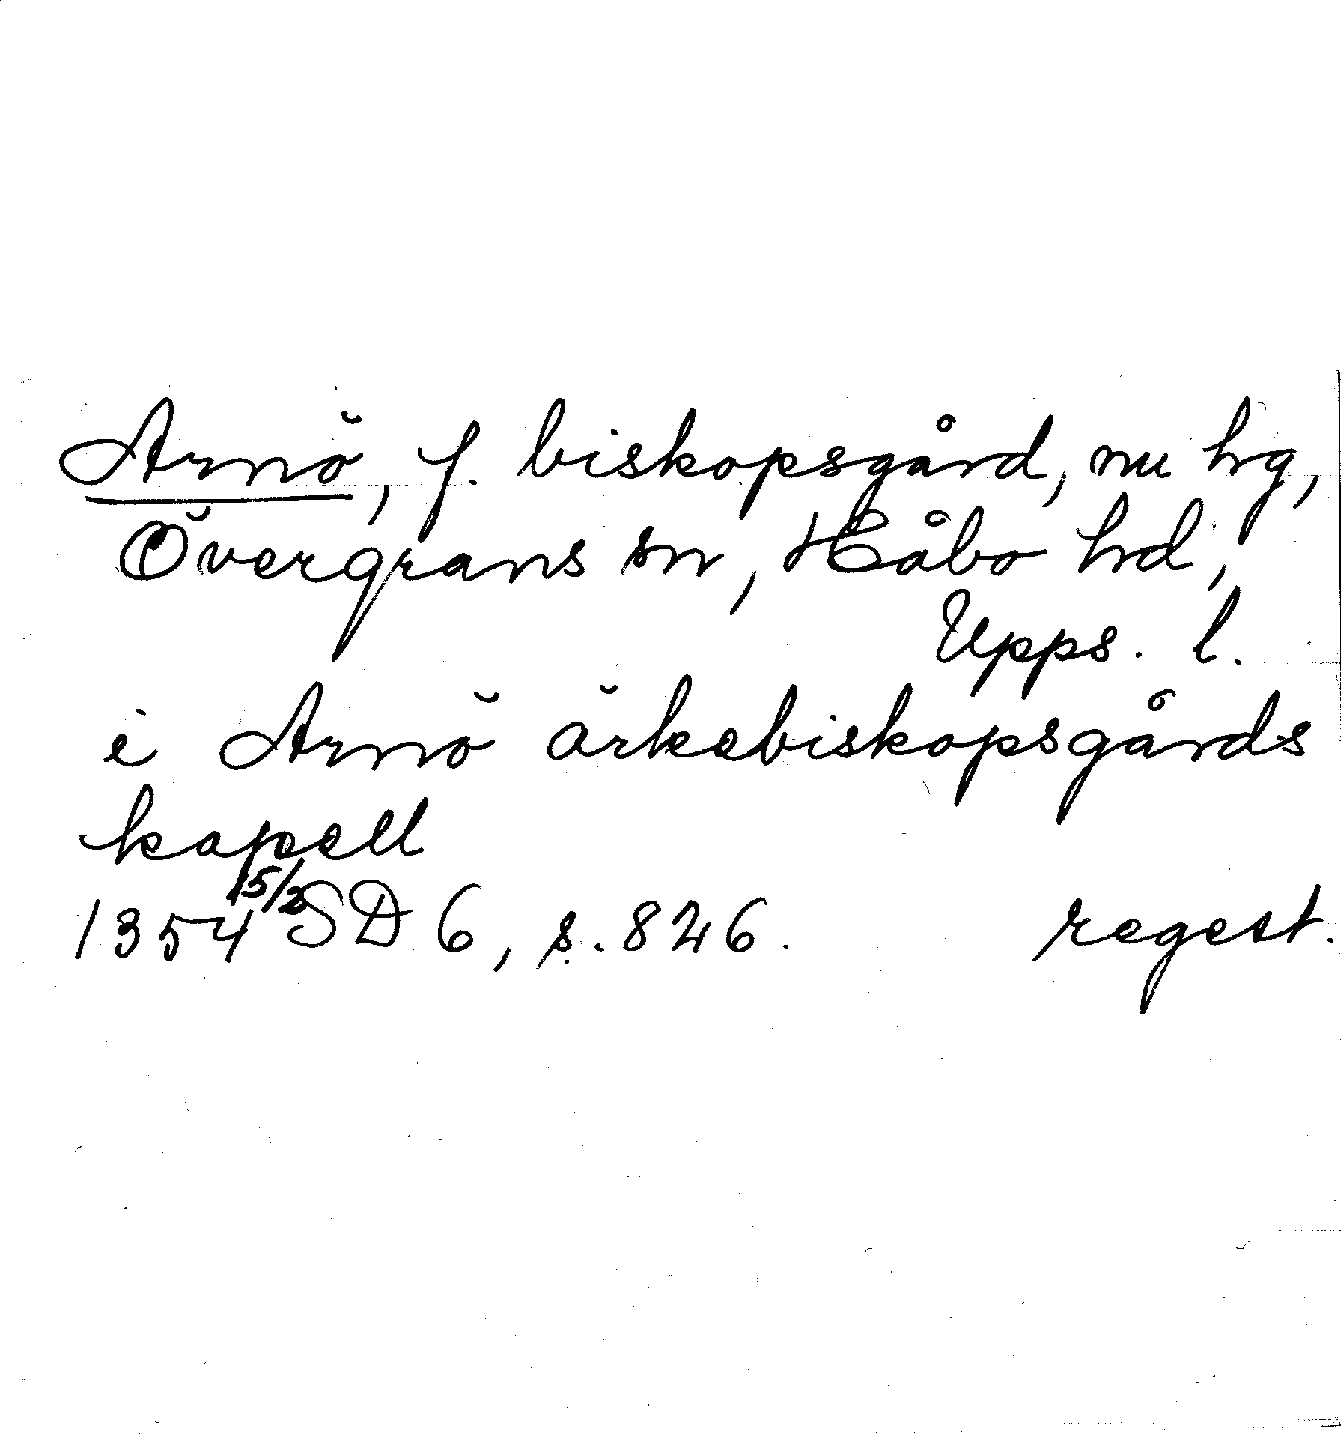 Arnö, f. biskopsgård, nu hg,
Övergrans sn, Håbo hd,
Upps. l.
i Arnö ärkebiskopsgårds
kapell
1354 15/2 SD 6, s. 826. regest.